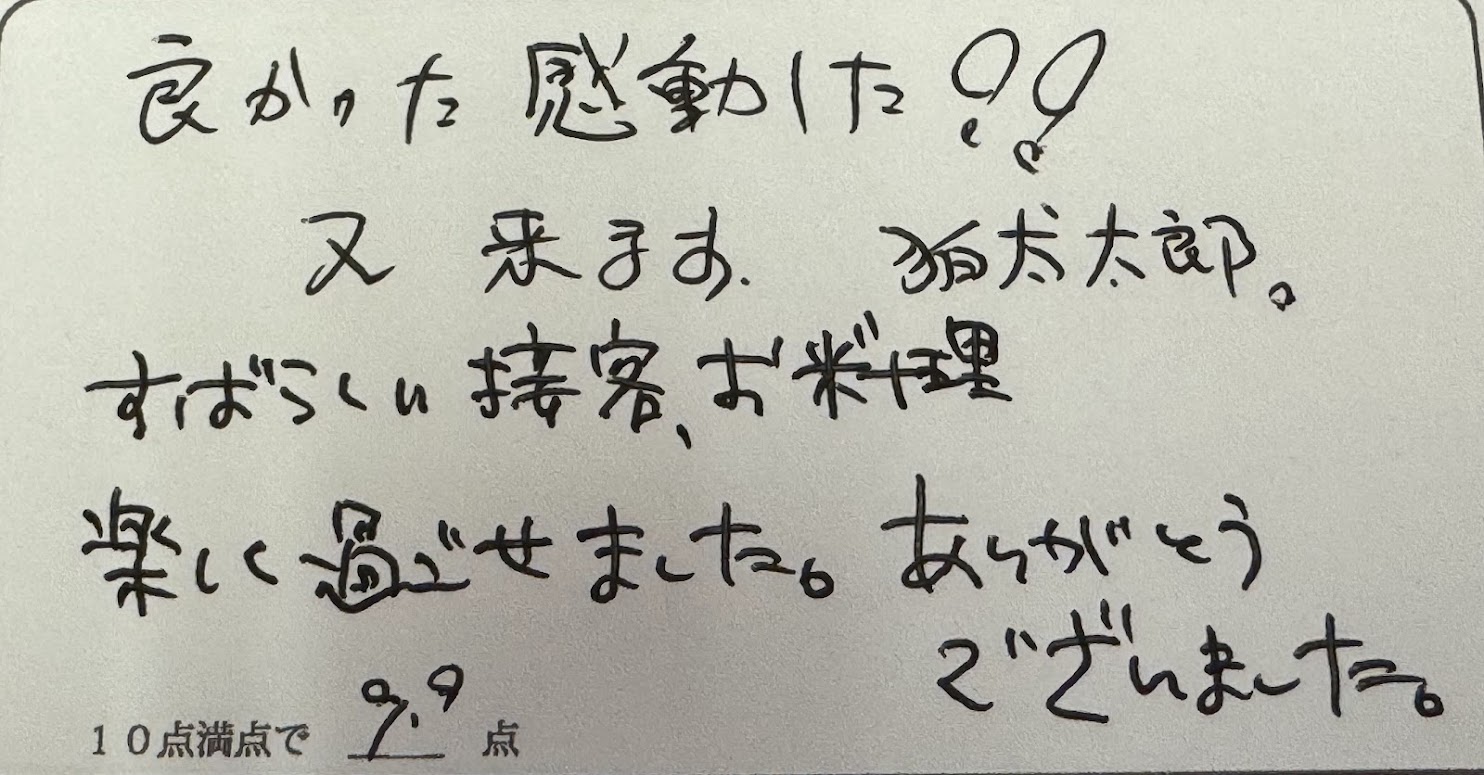 良かった感動した!!
又来ます. 狛犬太郎。
すばらしい接客、お料理
楽しく過ごせました。ありがとう
ございました。
10点満点で 9.9 点